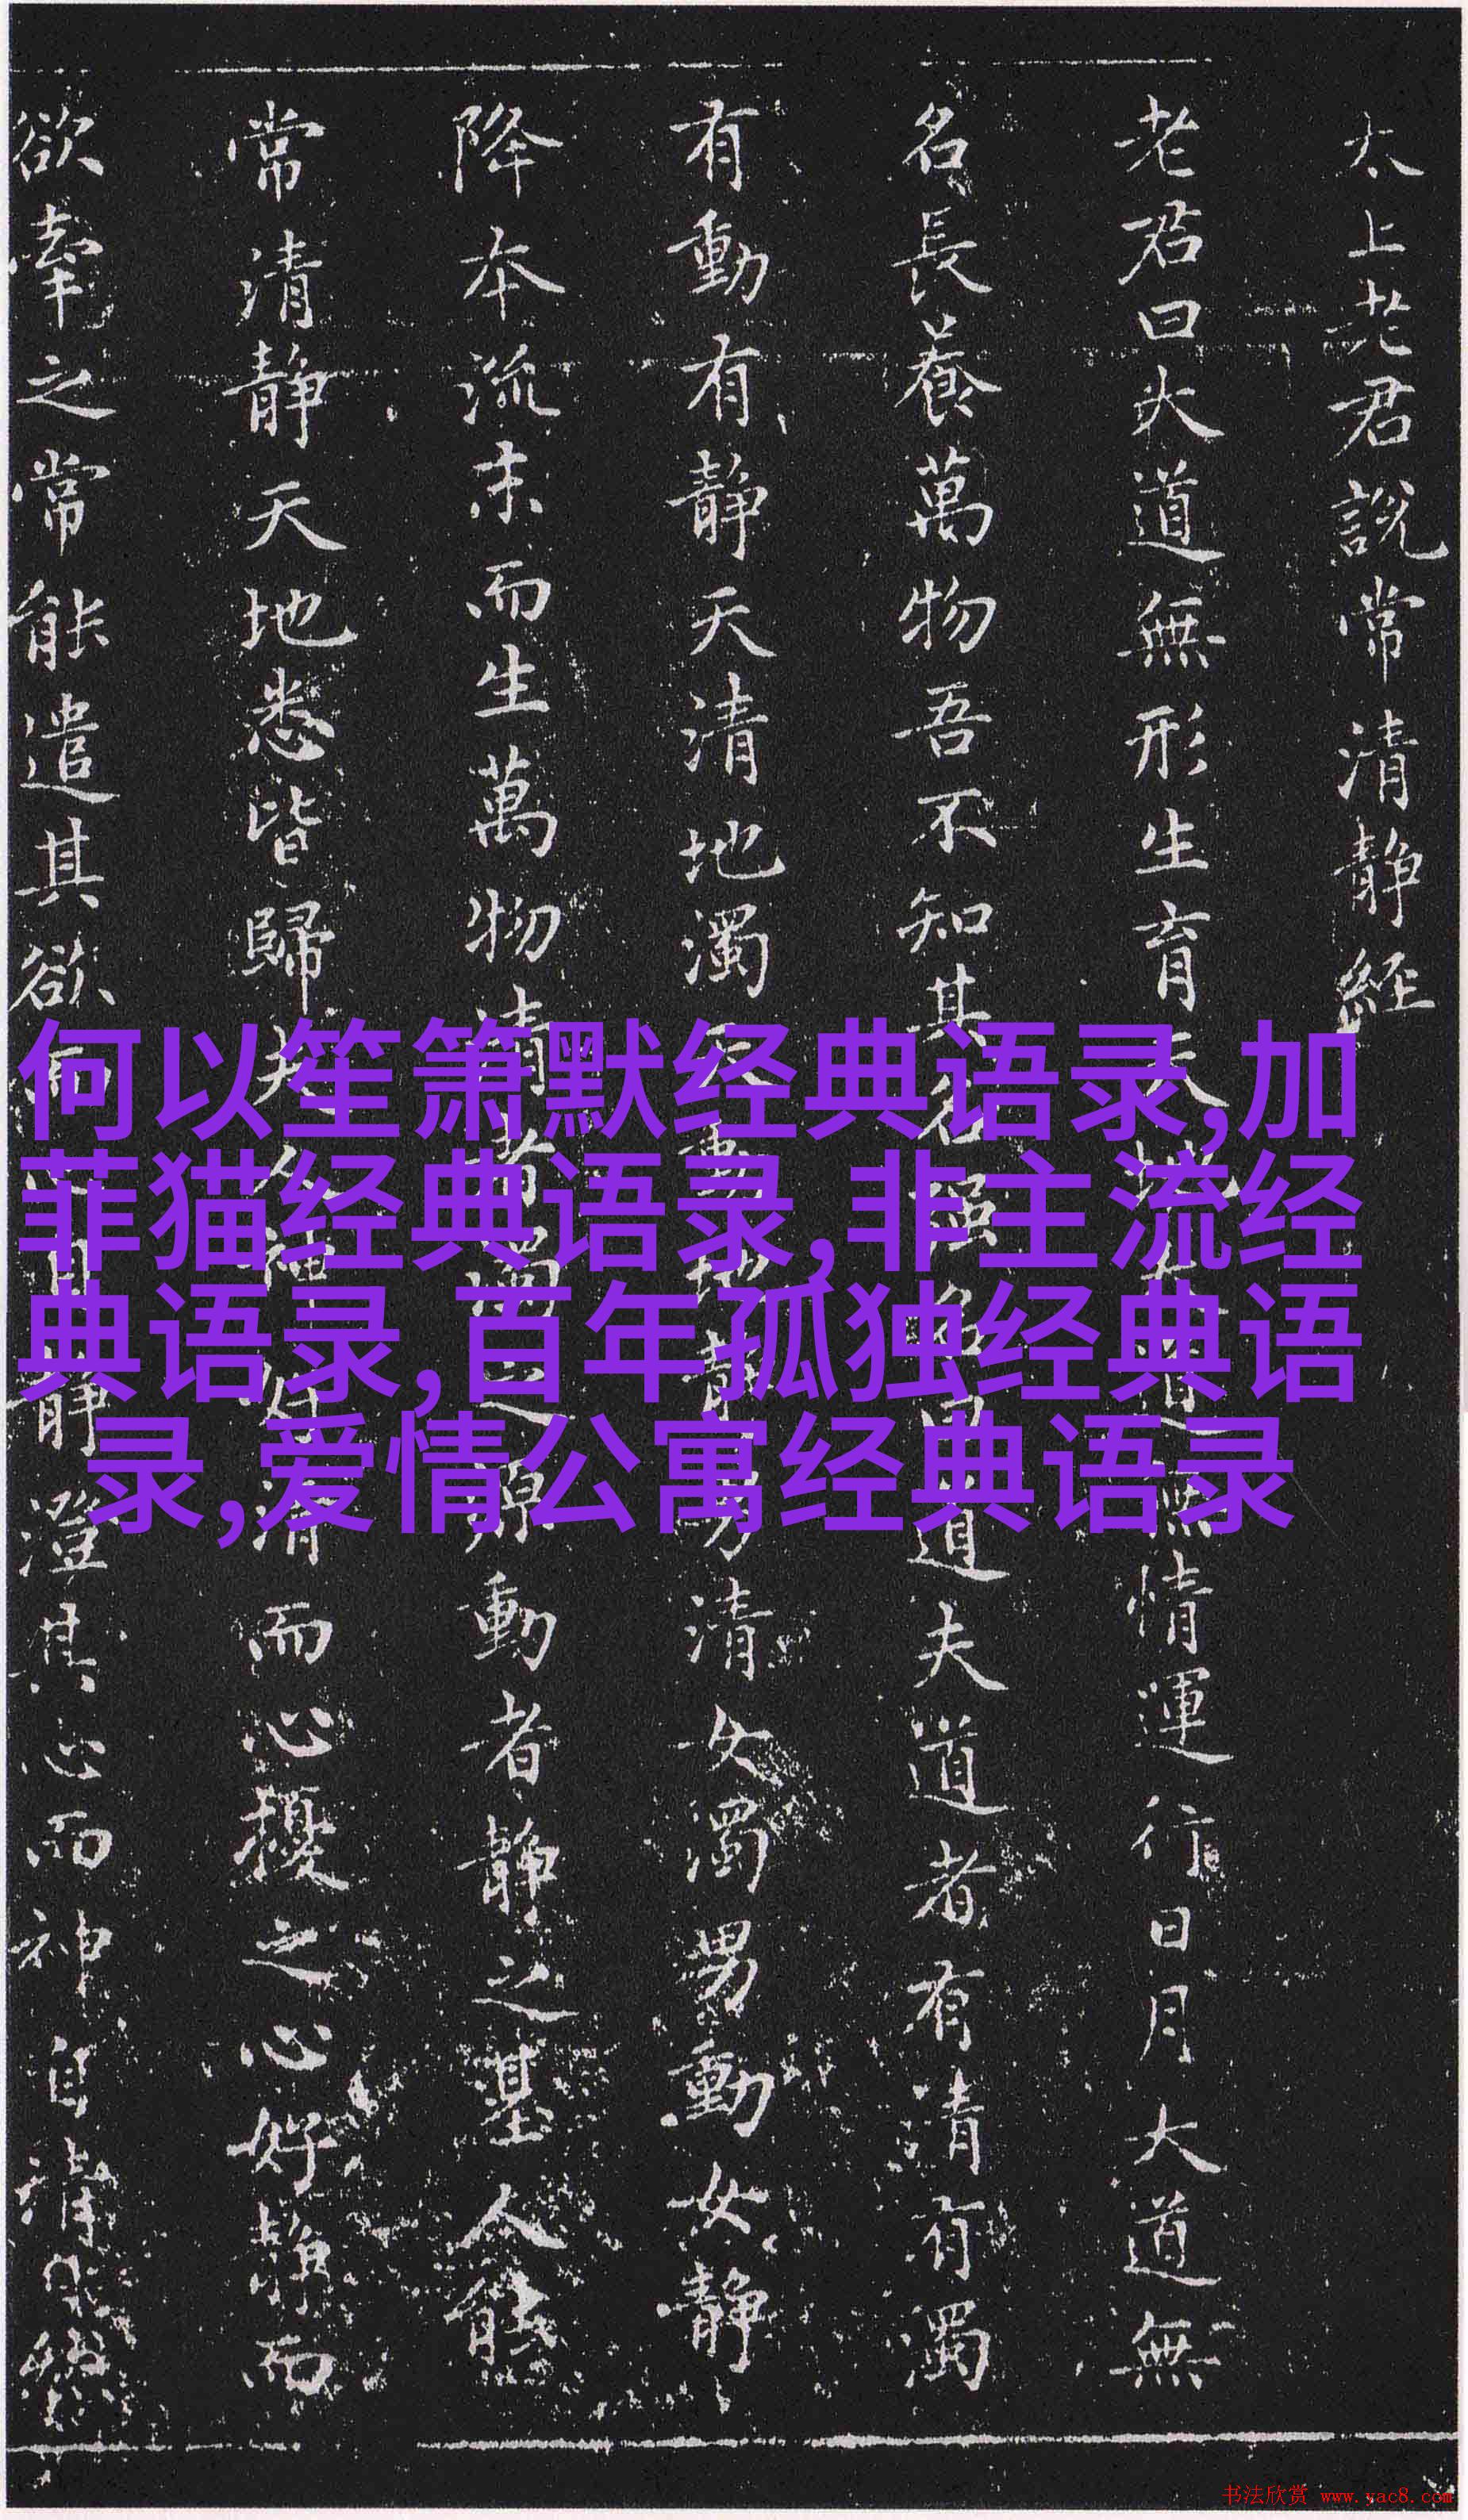 太上老君說常清静經
老君曰大道無形生育天地大道無情運行日月大道無
名長養萬物吾不知其名强名曰道夫道者有清有濁
有動有静天清地濁天動地静男清女濁男動女静
降本流末而生萬物清者濁之源動者静之基人能
常清静天地悉皆歸夫人神好清而心擾之心好静而
欲牽之常能遣其欲而心自静澄其心而神自清自然
何以笙箫默经典语录,加
菲猫经典语录,非主流经
典语录,百年孤独经典语
录,爱情公寓经典语录
书法欣赏 www.yac8.com